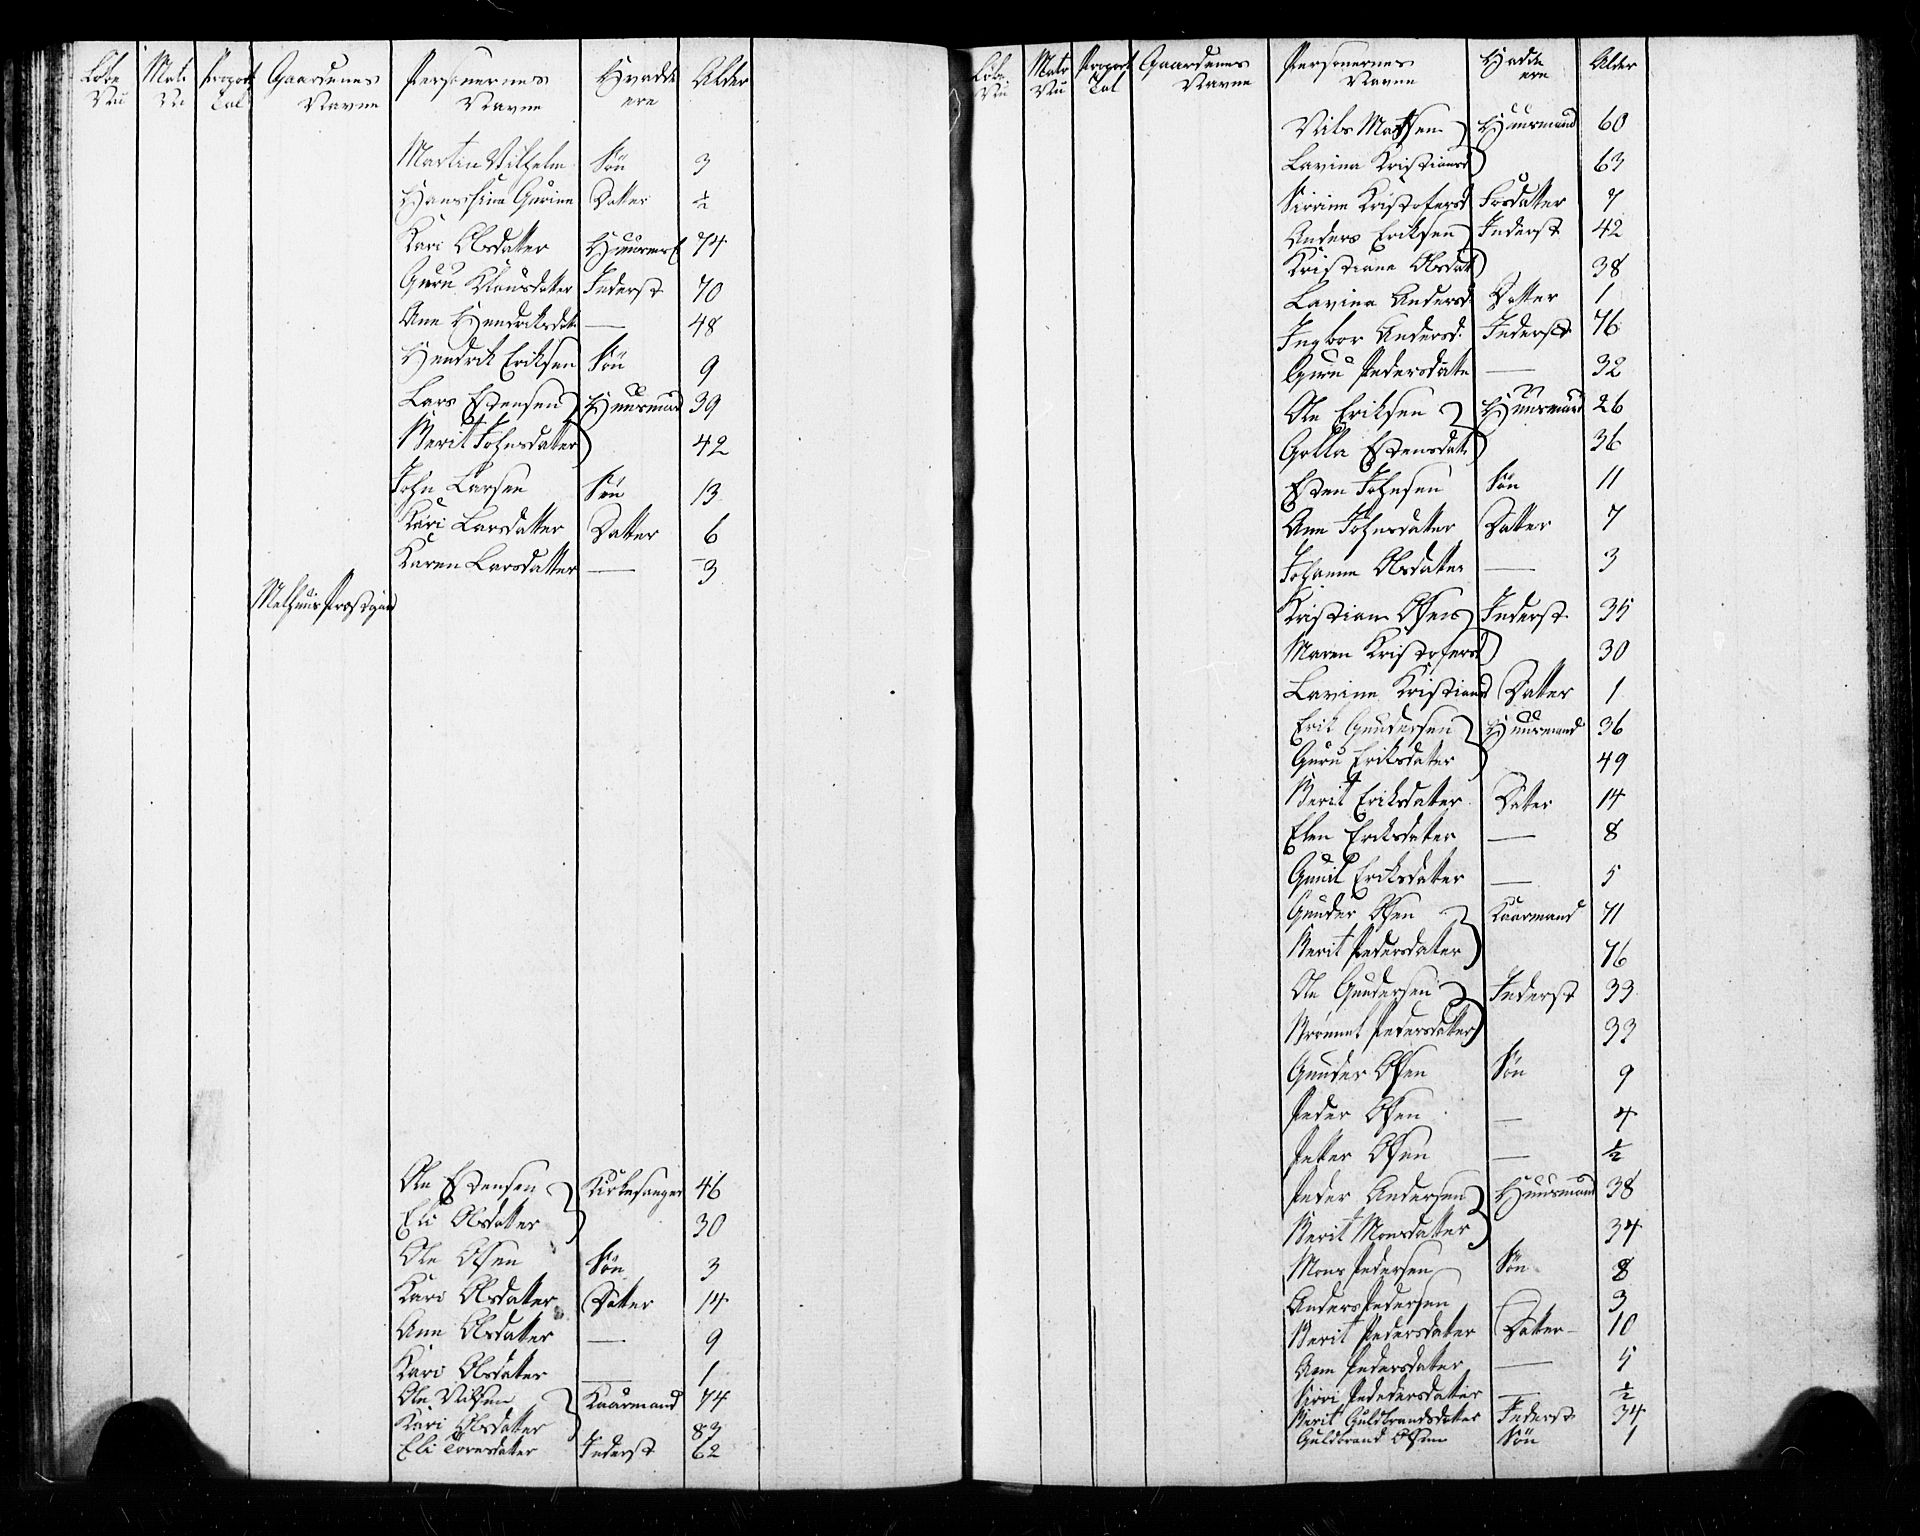 Løbe Nu	Matr Nu	Proport Tal	Gaardenes Navne	Personernes Navne	Hvadde ere	Alder
Martin Vilhelm	Søn	3
Hanssina Gurine	Datter	½
Kari Olsdatter	Huusmst	74
Guru Klausdatter	Inderst	70
Ane Hendriksdat	—	48
Hendrik Eriksen	Søn	9
Lars Estensen	Huusmand	39
Berit Johnsdatter		42
John Larsen	Søn	13
Kari Larsdatter	Datter	6
Karen Larsdatter	—	3
Melhuus Prestgaard
Ole Estensen	Kirkesanger	46
Eli Olsdatter		30
Ole Olsen	Søn	3
Kari Olsdatter	Datter	14
Ann Olsdatter	—	9
Kari Olsdatter	—	1
Ole Nilsen	Kaarmand	74
Kari Olsdatter		83
Eli Toresdatter	Inderst	62
Løbe Nu	Matr Nu	Proport Tal	Gaardenes Navne	Personernes Navne	Hvadde ere	Alder
Nils Matsen	Huusmand	60
Lavina Kristiansd		63
Sirrine Kristofersd	Fosdatter	7
Anders Eriksen	Inderst	42
Kristiane Olsdat		38
Lavina Andersd	Datter	1
Ingbor Andersd.	Inderst	76
Guru Pedersdatte	—	32
Ole Eriksen	Huusmand	26
Golla Estensdat		36
Esten Johnsen	Søn	11
Ane Johnsdatter	Datter	7
Johanna Olsdatter	—	3
Kristian Olsen	Inderst	35
Maren Kristofersd		30
Lavina Kristiansd	Datter	1
Erik Gundersen	Huusmand	36
Guru Eriksdatter		49
Berit Eriksdatter	Datter	14
Elen Eriksdatter	—	8
Gunil Eriksdatter	—	5
Gunder Olsen	Kaarmand	71
Berit Pedersdatter		76
Ole Gundersen	Inderst	33
Brønnel Pedersdatter		33
Gunder Olsen	Søn	9
Peder Olsen	—	4
Petter Olsen	—	½
Peder Andersen	Huusmand	38
Berit Monsdatter		34
Mons Pedersen	Søn	8
Anders Pedersen		3
Berit Pedersdatter	Datter	10
Ane Pedersdatter	—	5
Sirri Pededersdatter	—	½
Berit Guldbrandsdatter	Inderst	34
Guldbrand Olsen	Søn	1